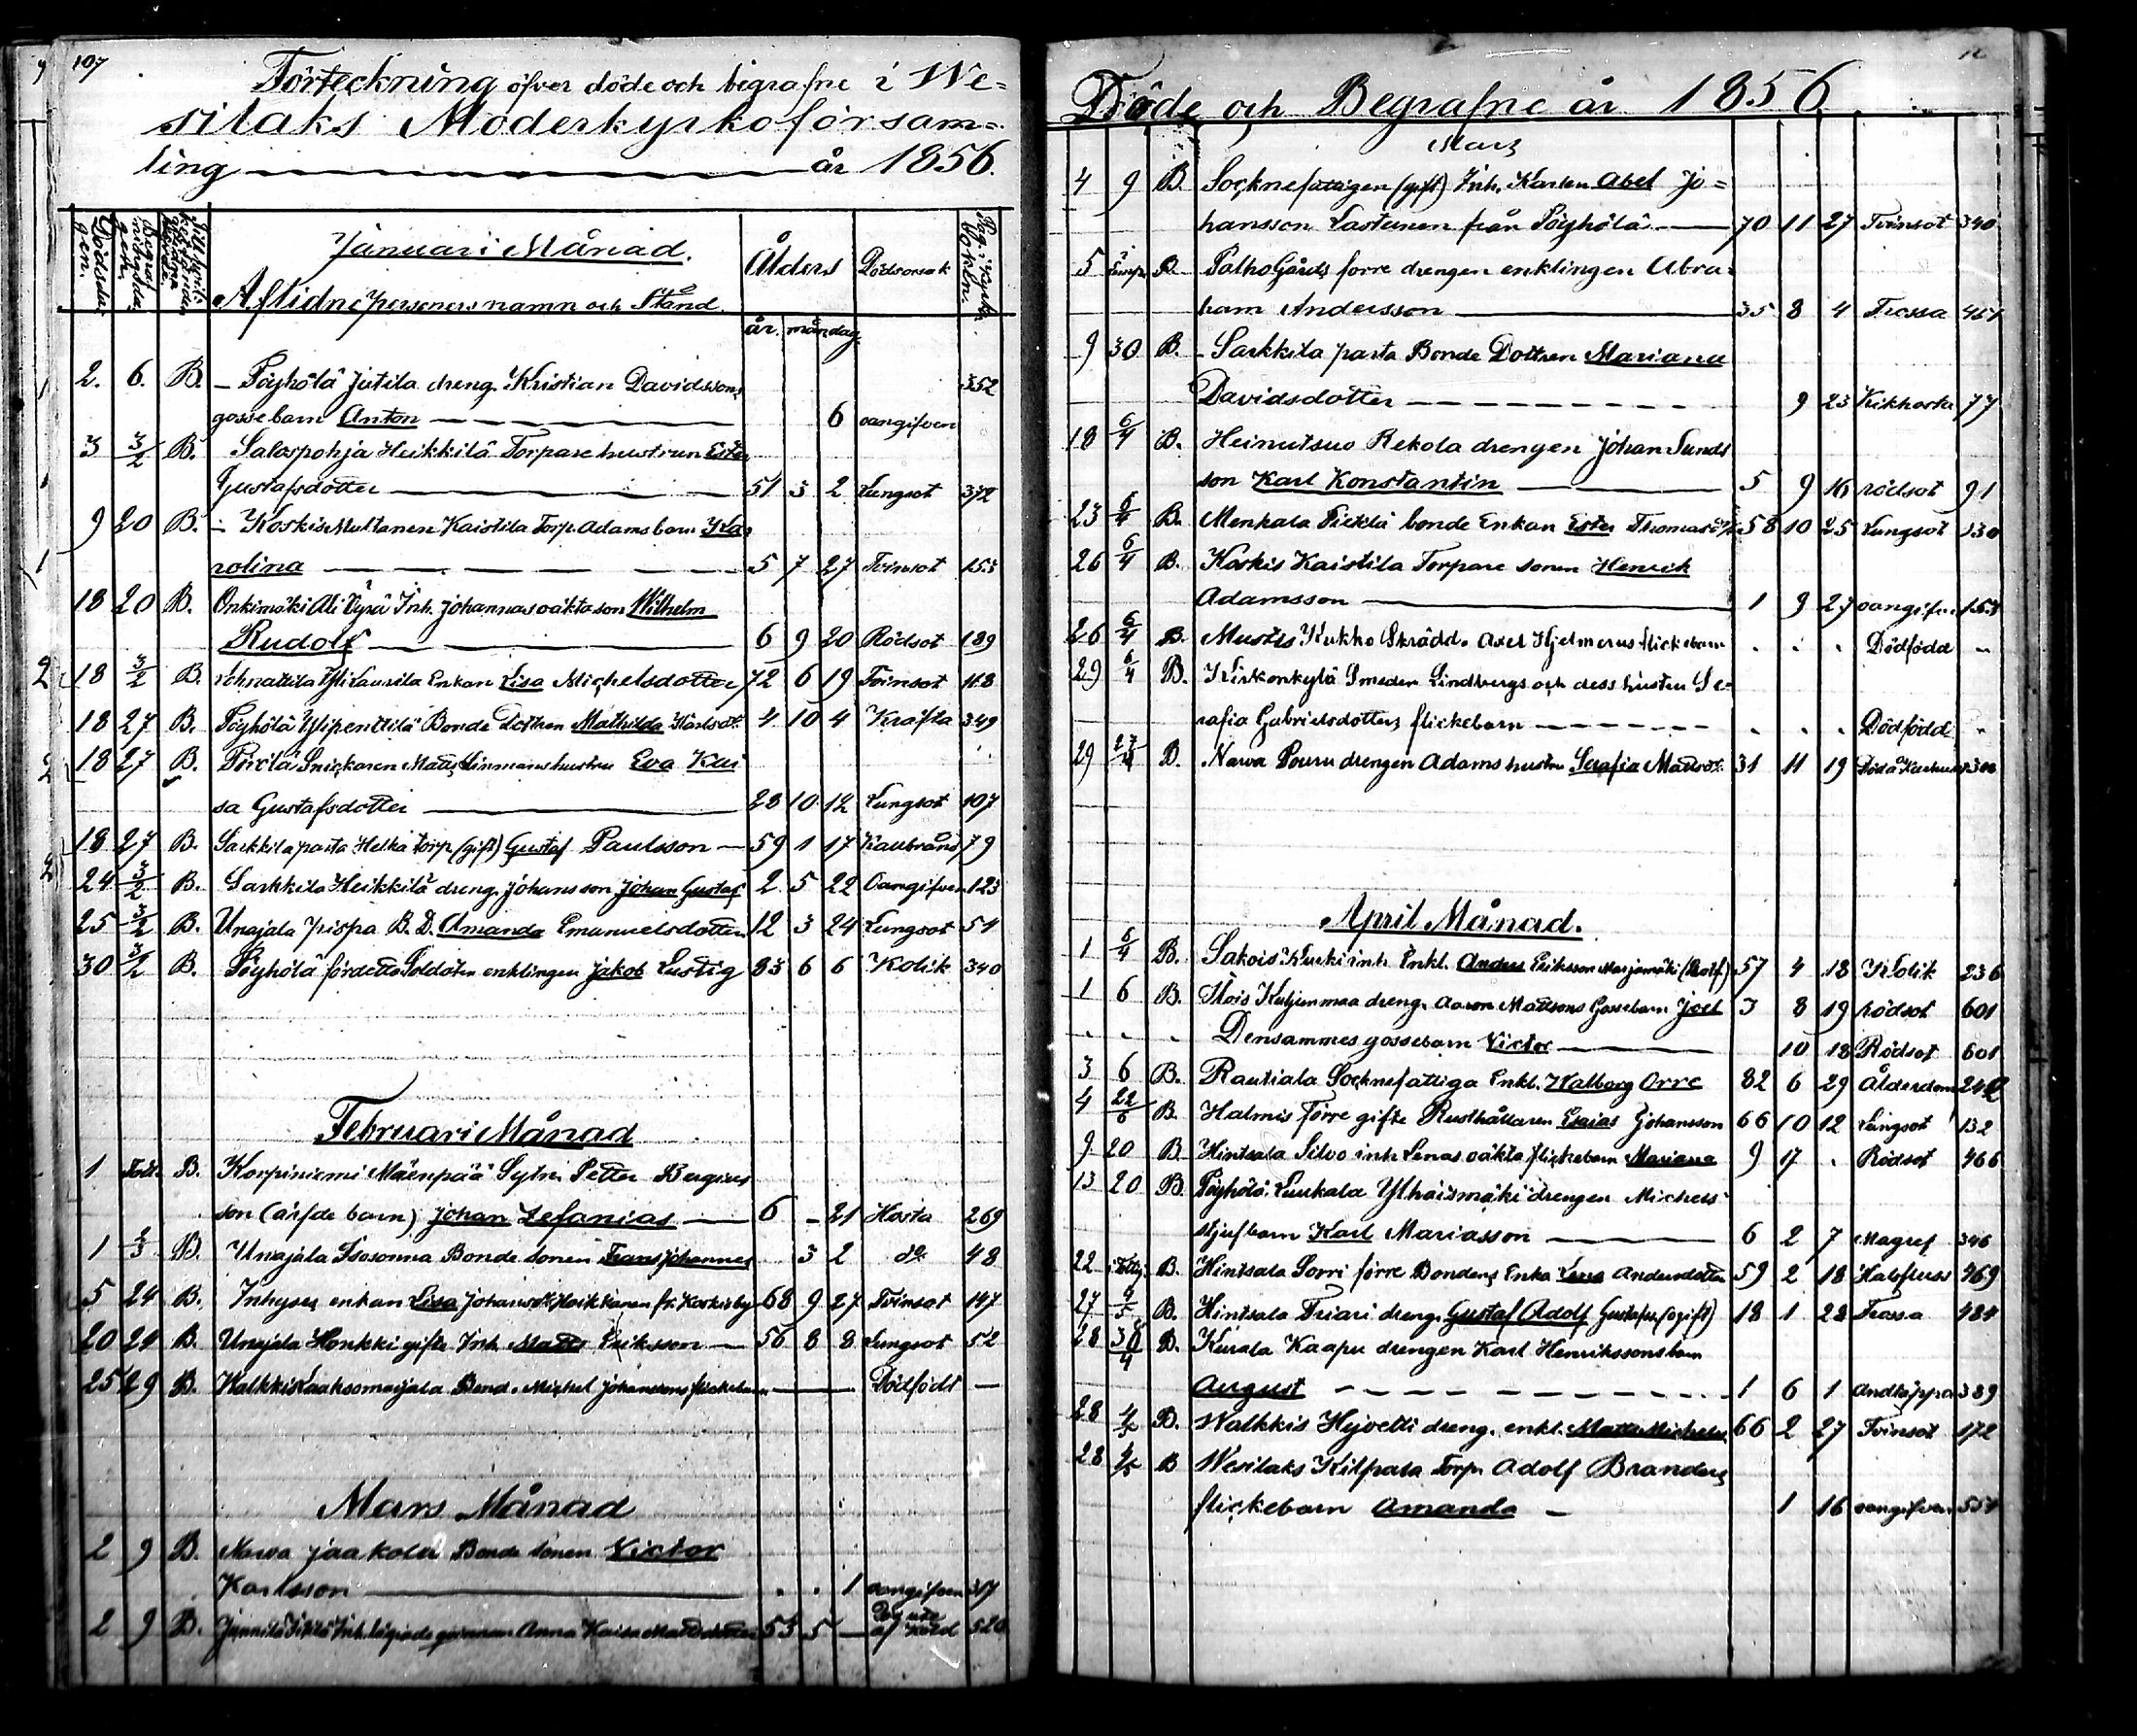 107
Förteckning öfver döde och begrafne i We=
silaks Moderkyrkoförsam=
ling år 1856.
Dödsda-
gen.
Januari Månad.
Aflidne personers namn och Stånd
Ålders
år. mån dag.
Dödsorsak
Pag. i kyrko
boken.
2. 6. B. Pöyhölä Jutila dreng. Kristian Davidssons 352
gossebarn Anton 6 oangifven
3 3/2 B. Salospohja Heikkilä Torpare hustrun Ester
Gustafsdotter 51 3 2 Lungsot 372
9 20 B. Koskis Multanen Kaistila Torp. Adams barn Ka
rolina 5 7 27 Tvinsot 153
18 20 B. Onkimäki Ali Äyrä Inh. Johannas oäkta son Wilhelm
Rudolf 6 9 20 Rödsot 189
18 3/2 B. Yli Laurila Enkan Lisa Michelsdotter 72 6 19 Tvinsot 118
18 27 B. Pöyhölä Ylipenttilä Bonde Dottren Mathilda Karlsdt. 4 10 4 Kräfta 349
18 27 B. Snickaren Matts hustru Eva Kai
sa Gustafsdotter 28 10 12 Lungsot 107
18 27 B. Sarkkila pasta Helka torp. (gift) Gustaf Paulsson 59 1 17 Kallbrand 79
24 3/2 B. Sarkkila Heikkilä dreng. Johans son Johan Gustaf 2 5 22 Oangifven 123
25 3/2 B. Unajala pispa B. D. Amanda Emanuelsdotter 12 3 24 Lungsot 54
30 3/2 B. Pöyhölä fördetta Soldaten enklingen Jakob Lustig 83 6 6 Kolik 340
Februari Månad
1 B. Korpiniemi Mäenpää Sytn. Petter Bergius
son (ärfde barn) Johan Zefanias 6 - 21 Hosta 269
1 2/3 B. Unajala Isosonna Bonde sonen Frans Johannes 3 2 do 48
5 24 B. Inhyses enkan Lisa Johansdt. Heikkanen fr. Koskisby 68 9 27 Tvinsot 147
20 24 B. Unajala Honkki gifte Inh. Matts Eriksson 56 8 8 Lungsot 52
25 29 B. Walkkis Laaksomaijala Bond. Michel Johanssons flickebarn Dödfödt
Mars Månad
2 9 B. Narva Jaakola Bonde sonen Victor
Karlsson 1 oangifven 317
2 9 B. Inh. Anna Kaisa Mattsdotter 53 5 - 520
af köld
Döde och Begrafne år 1856
Mars
4 9 B. Socknefattigen (gift) Inh. Karlen Abel Jo=
hansson Lastunen från Pöyhölä 70 11 27 Tvinsot 340
5 B. Palho Gårds förre drengen enklingen Abra=
ham Andersson 35 8 4 Frossa 454
9 30 B. Sarkkila pasta Bonde Dottren Mariana
Davidsdotter 9 23 Kikhosta 77
18 6/4 B. Heinutsuo Rekola drengen Johan Lunds
son Karl Konstantin 5 9 16 rödsot 91
23 6/4 B. Menkala Bonde Enkan Ester Thomasdt. 58 10 25 Lungsot 130
26 6/4 B. Koskis Kaistila Torpare sonen Henrik
Adamsson 1 9 27 oangifven 153
26 6/4 B. Mustis Kukko Skrädd. Axel Hjelmerus flickebarn Dödfödd
29 6/4 B. Kirkonkylä Smeden Lindbergs och dess hustru Se=
rafia Gabrielsdotters flickebarn Dödfödd
29 27/4 B. Narva Pouru drengen Adams hustru Serafia Mattsdt. 31 11 19
April Månad.
1 6/4 B. Sakois Kurki inh. Enkl. Anders Eriksson Marjamäki 57 4 18 Kolik 236
1 6 B. Kuljunmaa dreng. Aaron Mattsons Gossebarn Joel 3 8 19 rödsot 601
Densammes gossebarn Victor 10 18 Rödsot 601
3 6 B. Rautiala Socknefattiga Enkl. Walborg Orre 82 6 29 Ålderdom
4 22/6 B. Halmis Förre gifte Rusthållaren Esaias Johansson 66 10 12 Lungsot 132
9 20 B. Hintsala Silvo inh. Lenas oäkta flickebarn Mariana 9 17 Rödsot 466
13 20 B. Pöyhölä Luukala drengen Michels
styfbarn Karl Mariasson 6 2 7 Magref 346
22 B. Hintsala Sorri förre Bondens Enka Lena Andersdotter 59 2 18 Halsfluss 469
27 4/5 B. Hintsala Friari dreng. Gustaf Adolf Gustafss. (ogift) 18 1 28 Frossa 484
28 30/4 B. Kurala Kaapu drengen Karl Henrikssons barn
August 1 6 1 andtäppa 389
28 4/5 B. Walkkis Hyvetti dreng. enkl. Matts Michelss. 66 2 27 Tvinsot 172
28 4/5 B Wesilaks Kilpala Torp. Adolf Branders
flickebarn Amanda 1 16 oangifven 554